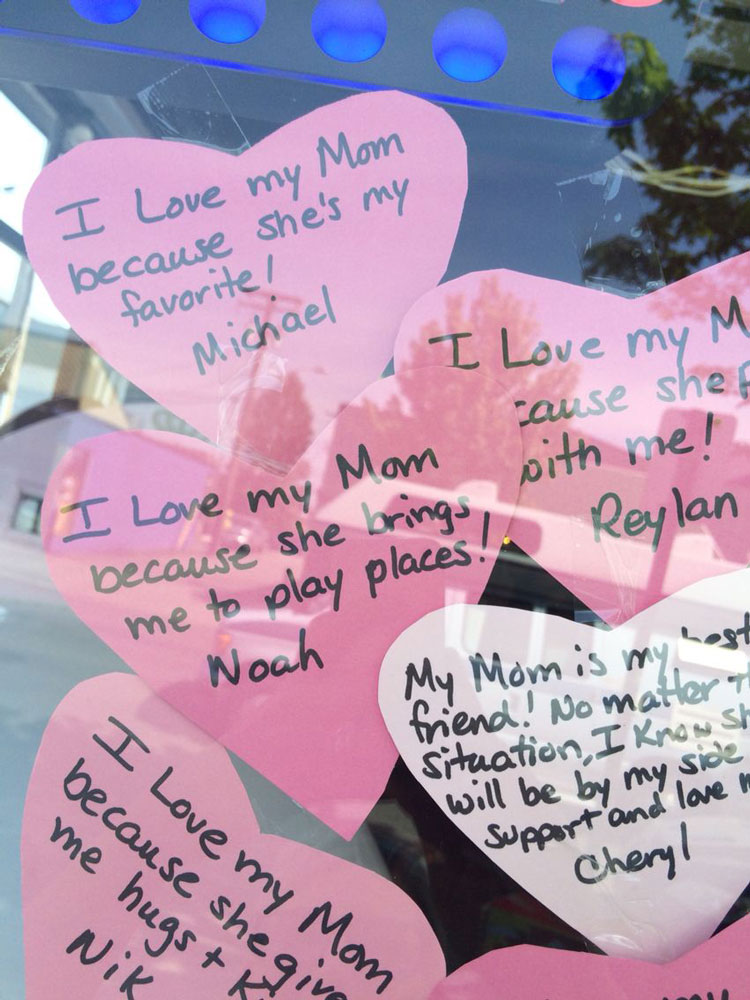 I Love my Mom
because she's my
favorite!
Michael
I Love my
cause she
with me!
Reylan
I Love my Mom
because she brings
me to play places!
Noah
My Mom is my best
friend! No matter
situation, I know
will be by my side
support and love
Cheryl
I Love my Mom
because she give
me hugs +
Nik
my